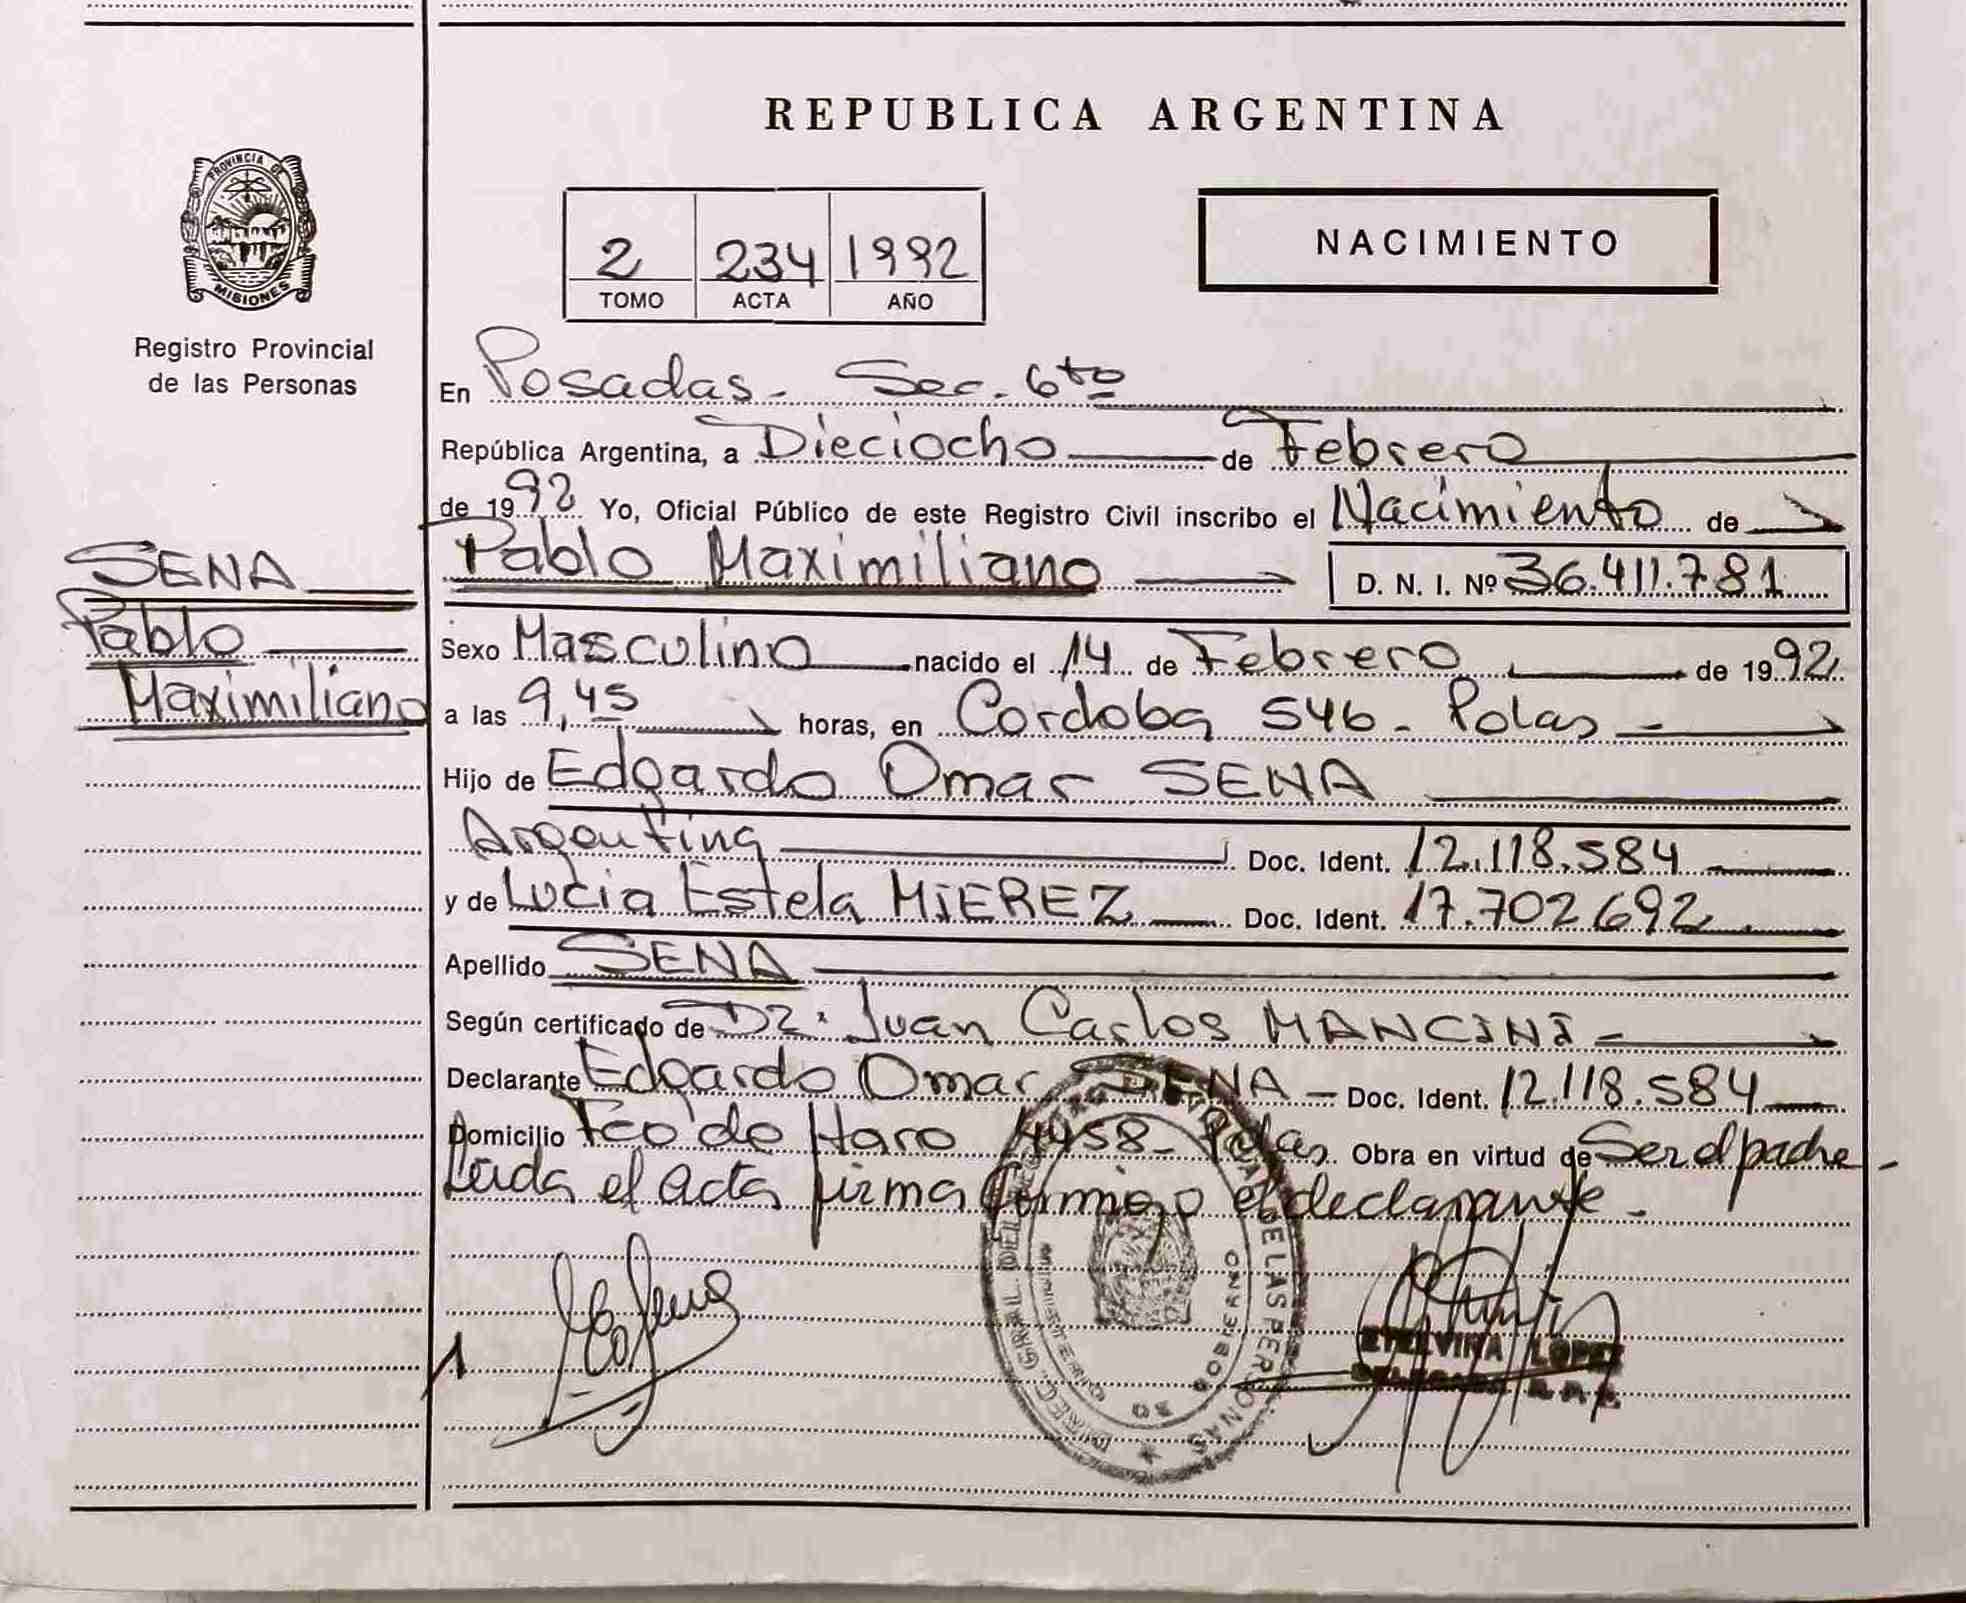 REPUBLICA ARGENTINA
PROVINCIA DE
MISIONES
Registro Provincial
de las Personas
2 234 1992
TOMO ACTA AÑO
NACIMIENTO
En Posadas - Sec. 6to
República Argentina, a Dieciocho de Febrero
de 1992 Yo, Oficial Público de este Registro Civil inscribo el Nacimiento de
SENA
Pablo
Maximiliano
Pablo Maximiliano D. N. I. Nº 36.411.781
Sexo Masculino nacido el 14 de Febrero de 1992
a las 9,45 horas, en Cordoba 546 - Pdas -
Hijo de Edgardo Omar SENA
Argentina Doc. Ident. 12.118.584
y de Lucia Estela MIEREZ Doc. Ident. 17.702692
Apellido SENA
Según certificado de Dr. Juan Carlos MANCINI -
Declarante Edgardo Omar SENA - Doc. Ident. 12.118.584
Domicilio Fco de Haro 4958 - Pdas. Obra en virtud de Ser el padre -
Leida el acta firma conmigo el declarante -
DIREC. GRAL. DEL REGISTRO PROV. DE LAS PERSONAS
MINISTERIO DE GOBIERNO
ETELVINA LOPEZ
DELEGADA R. P. P.